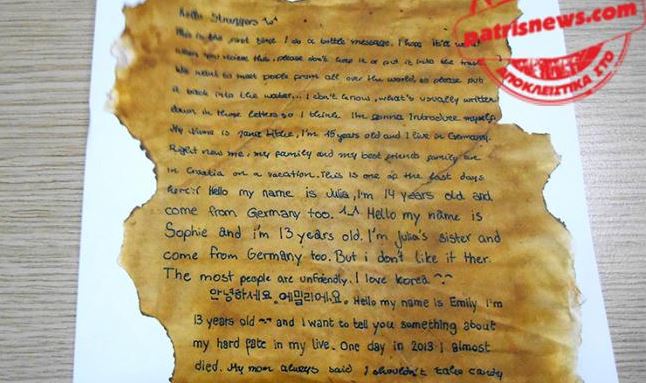 patrisnews.com
ΑΠΟΚΛΕΙΣΤΙΚΑ ΣΤΟ
Hello Strangers
This is the first time I do a bottle message. I hope it'll
when you receive this, please don't keep it or put it into the trash
We want to meet people from all over the world, so please put
it back into the water... I don't know, what's usually written
down in those letters so I think I'm gonna introduce myself
My name is, I'm 15 years old and I live in Germany.
Right now me, my family and my best friends family are
in Croatia on a vacation. This is one of the last days
here:( Hello my name is Julia, I'm 14 years old and
come from Germany too. ^-^ Hello my name is
Sophie and i'm 13 years old. I'm Julia's sister and
come from Germany too. But i don't like it ther.
The most people are unfriendly. I love Korea ^^
안녕하세요. 에밀리에요. Hello my name is Emily I'm
13 years old ^^ and I want to tell you something about
my hard fate in my live. One day in 2013 I almost
died. My mom always said I shouldn't take candy